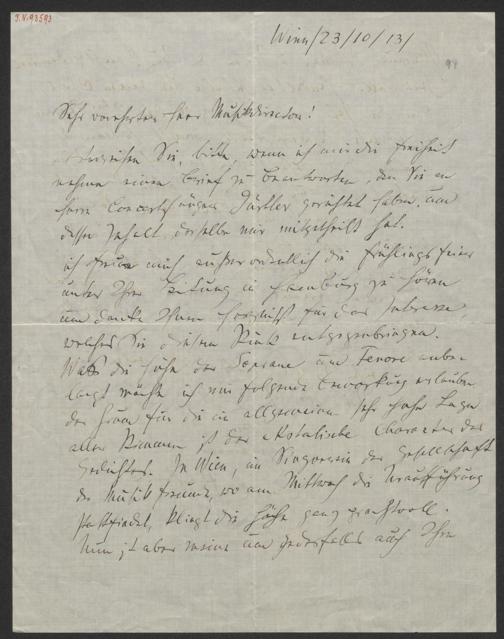 I.N.93593
Wien/23/10/13/
94
Sehr verehrter Herr Musikdirector!
Verzeihen Sie, bitte, wenn ich mir die Freiheit
nehme einen Brief zu beantworten, den Sie an
Herrn Concertsänger gerichtet haben und
dessen Inhalt derselbe mir mitgetheilt hat.
ich freue mich außerordentlich die Frühlingsfeier
unter Ihrer Leitung in zu hören
und danke Ihnen herzlichst für das Interesse,
welches Sie diesem Stück entgegenbringen.
Was die Höhe der Soprane und Tenore anbe-
langt möchte ich mir folgende Bemerkung erlauben
der Grund für die im allgemeinen sehr hohe Lage
aller Stimmen ist der ekstatische Charakter des
Gedichtes. In Wien, im Singverein der Gesellschaft
der Musikfreunde, wo am Mittwoch die Uraufführung
stattfindet, klingt die Höhe ganz prachtvoll.
Nun ist aber meine und jedenfalls auch Ihre